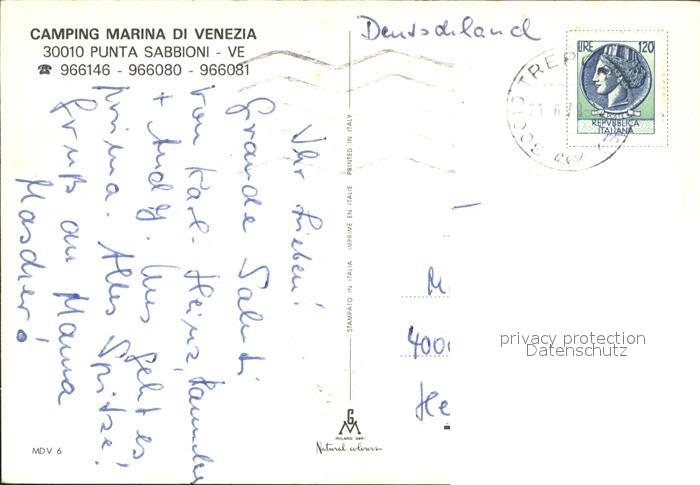 CAMPING MARINA DI VENEZIA
30010 PUNTA SABBIONI - VE
☎ 966146 - 966080 - 966081
Ihr Lieben!
Grande Saluti
von Karl-Heinz,
+ Andy. Uns geht es
prima. Alles Spitze!
Gruß an Mama
Mascher!
MDV 6
STAMPATO IN ITALIA IMPRIMÉ EN ITALIE PRINTED IN ITALY
GM
MILANO DEP.
Natural colours
Deutschland
LIRE 120
REPVBBLICA
ITALIANA
M
400
He
privacy protection
Datenschutz